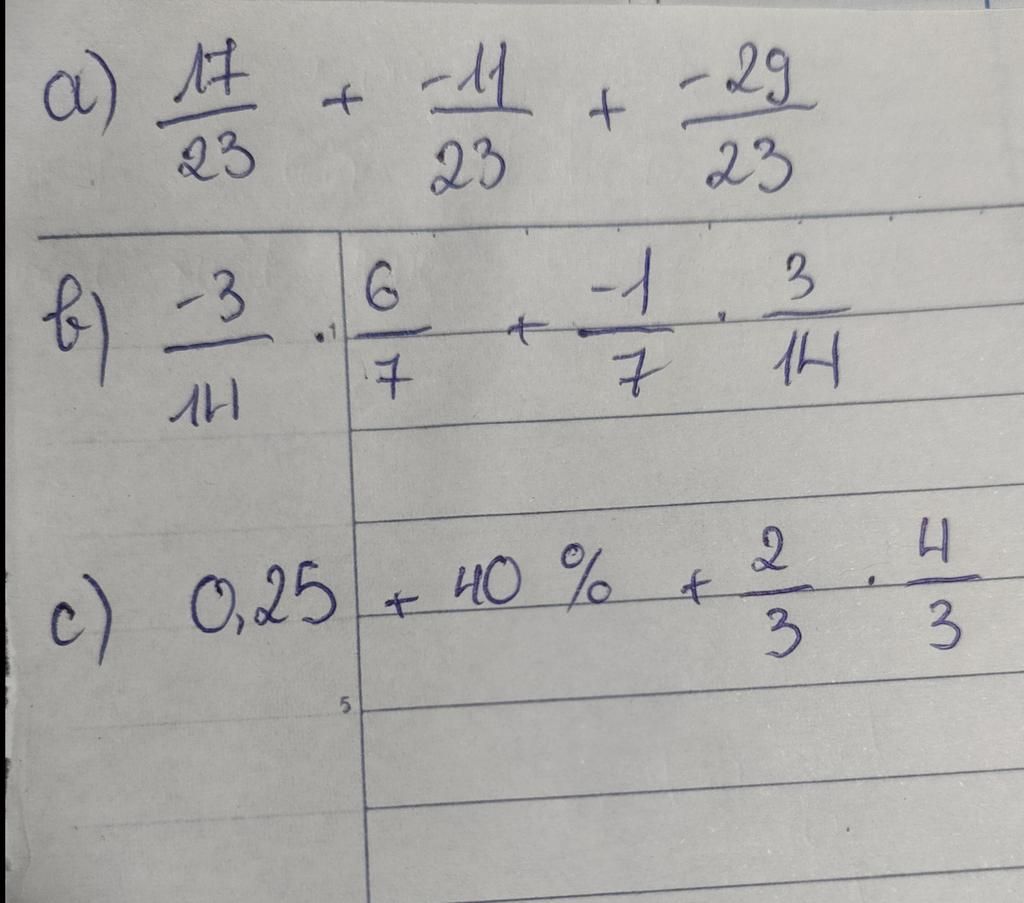 a) 17/23 + -11/23 + -29/23
b) -3/14 · 6/7 + -1/7 · 3/14
1
c) 0,25 + 40 % + 2/3 · 4/3
5